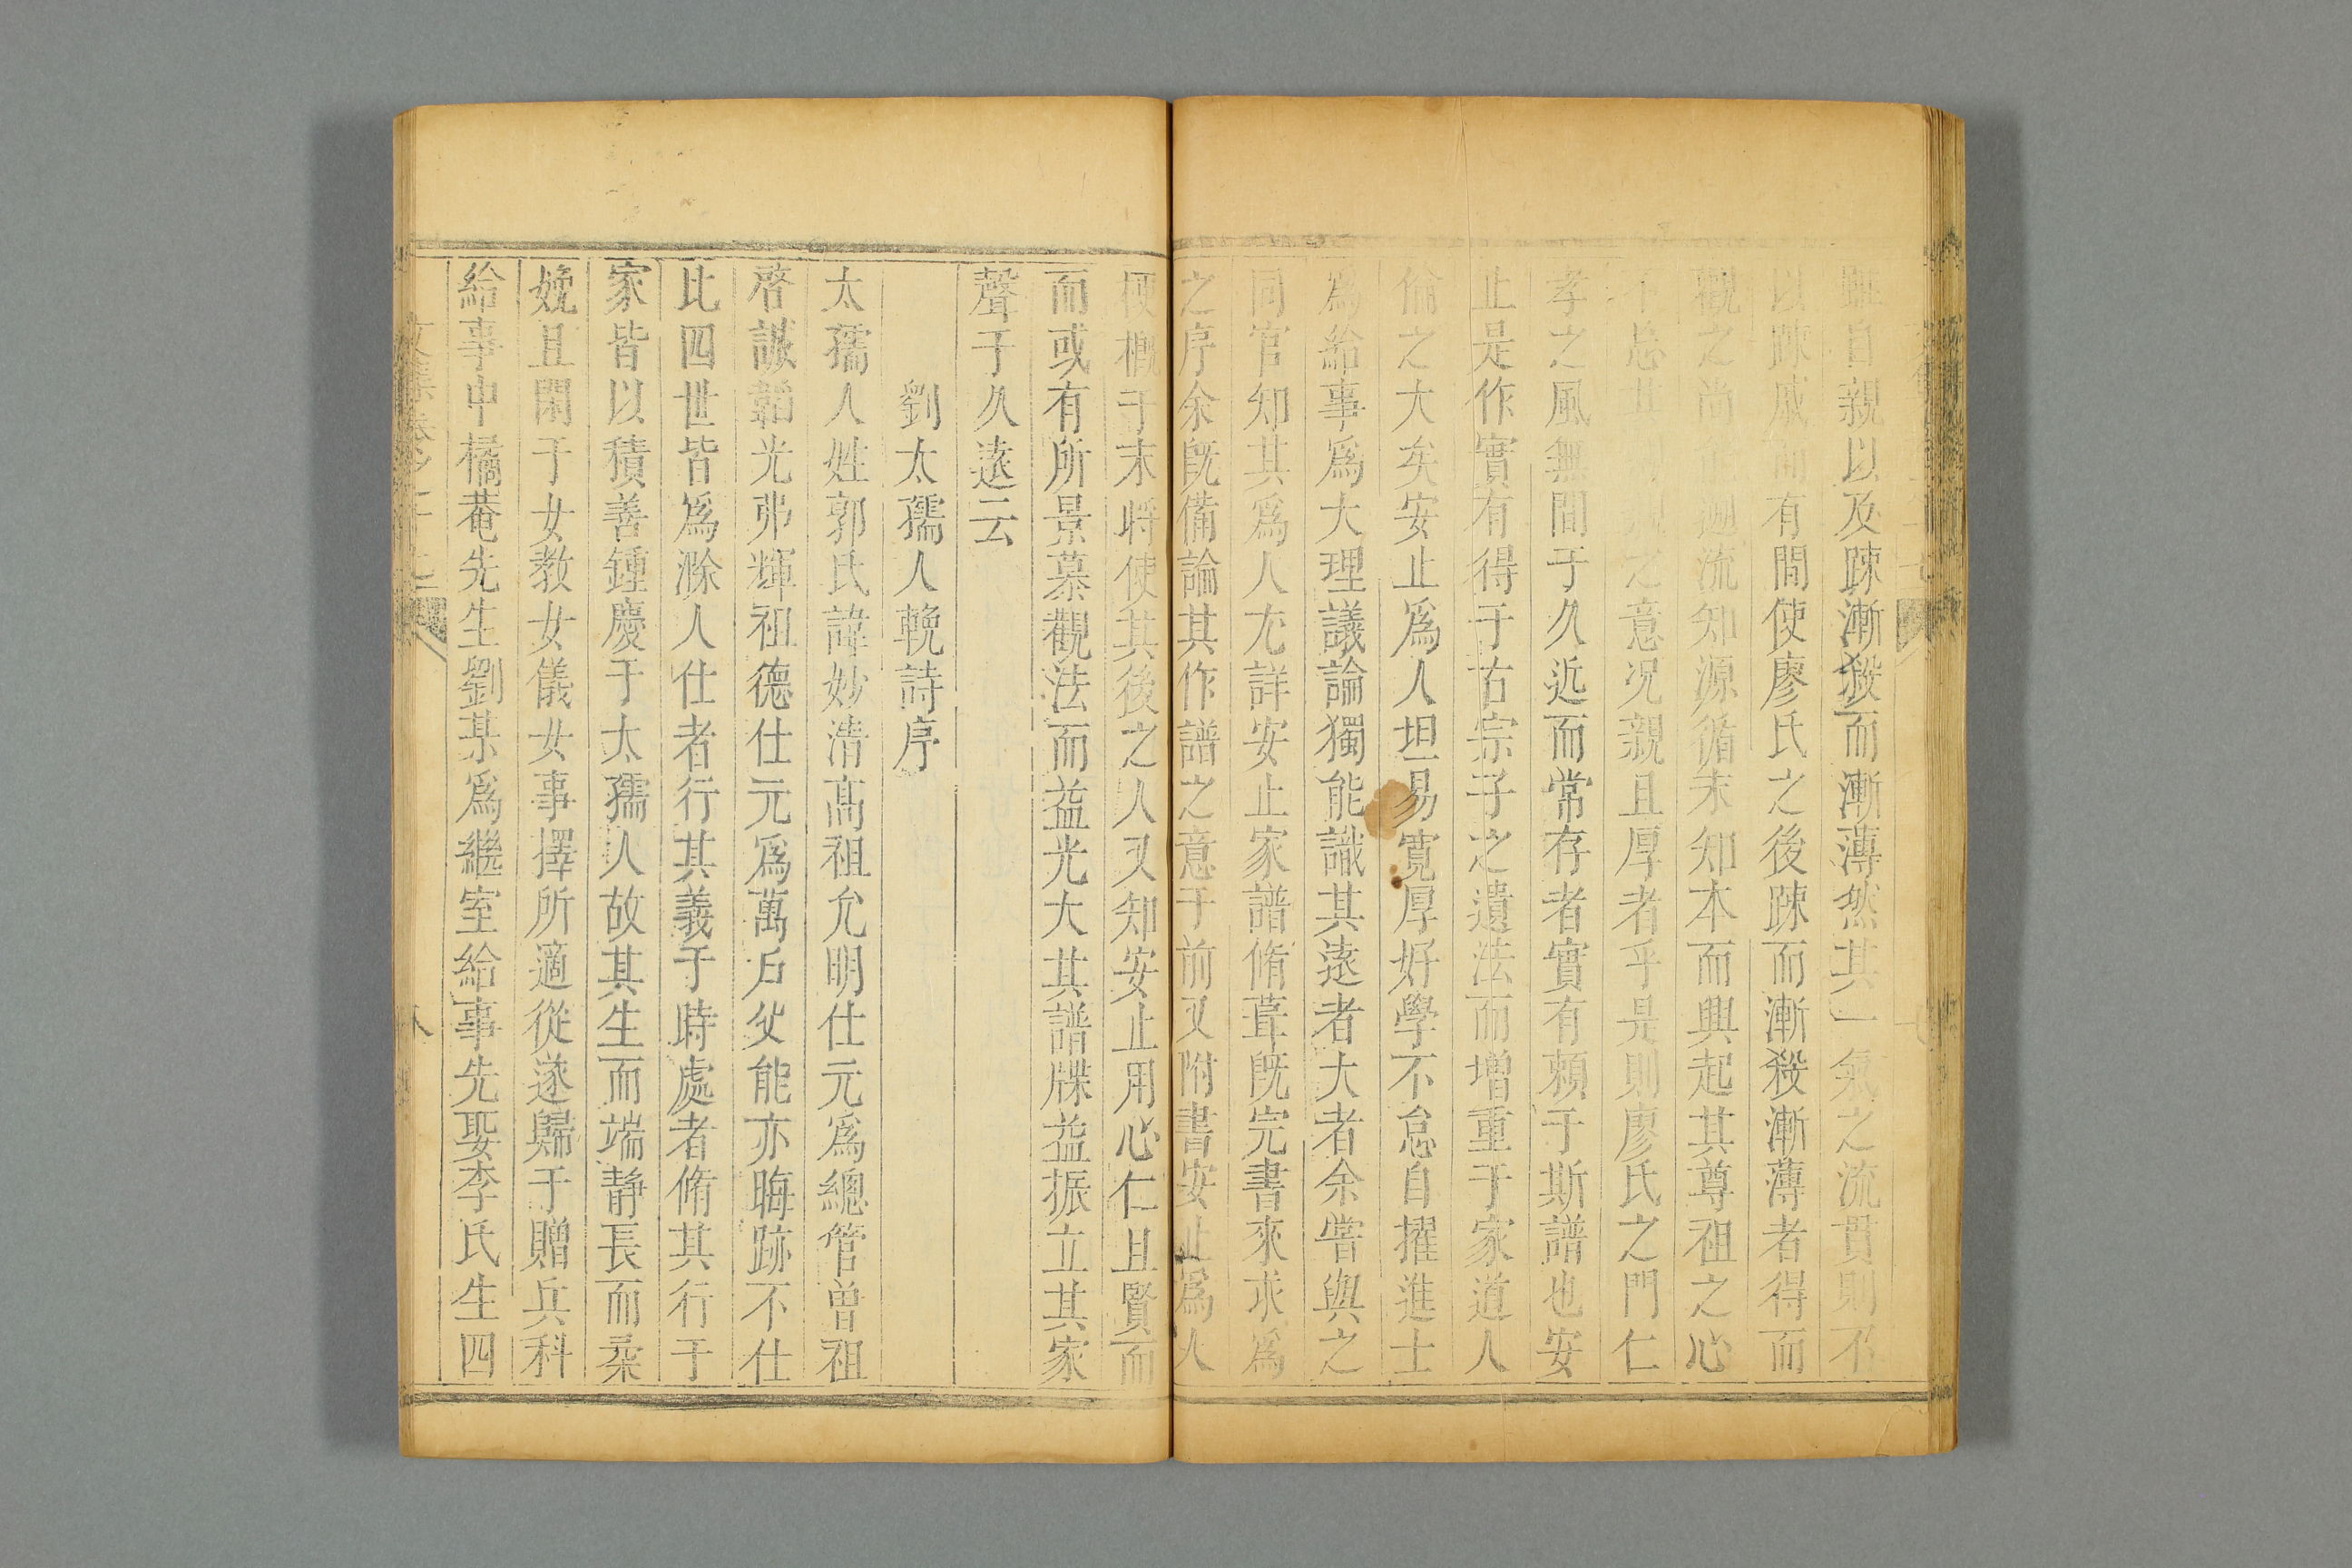 自親以及踈漸殺而漸薄然其一氣之流貫則不
以踈戚而有間使廖氏之後踈而漸殺漸薄者得而
觀之尚流知源循末知本而興起其尊祖之心
不忘其之意况親且厚者乎是則廖氏之門仁
孝之風無間于久近而常存者實有頼于斯譜也安
止是作實有得于古宗子之遺法而增重于家道人
倫之大矣安止爲人坦易寬厚好學不怠自擢進士
爲給事爲大理議論獨能識其遠者大者余甞與之
同官知其爲人尤詳安止家譜脩葺旣完書來求爲
之序余旣備論其作譜之意于前又附書安止爲人
梗槪于末將使其後之人又知安止用心仁且賢而
而或有所景慕觀法而益光大其譜牒益振立其家
聲于久遠云
劉太孺人輓詩序
太孺人姓郭氏諱妙清高祖允明仕元爲總管曾祖
啓誠韜光弗輝祖德仕元爲萬戶父能亦晦跡不仕
比四世皆爲滁人仕者行其義于時處者脩其行于
家皆以積善鍾慶于太孺人故其生而端靜長而柔
婉且閑于女教女儀女事擇所適從遂歸于贈兵科
給事中橘菴先生劉某爲繼室給事先娶李氏生四
文集卷之二十七
八